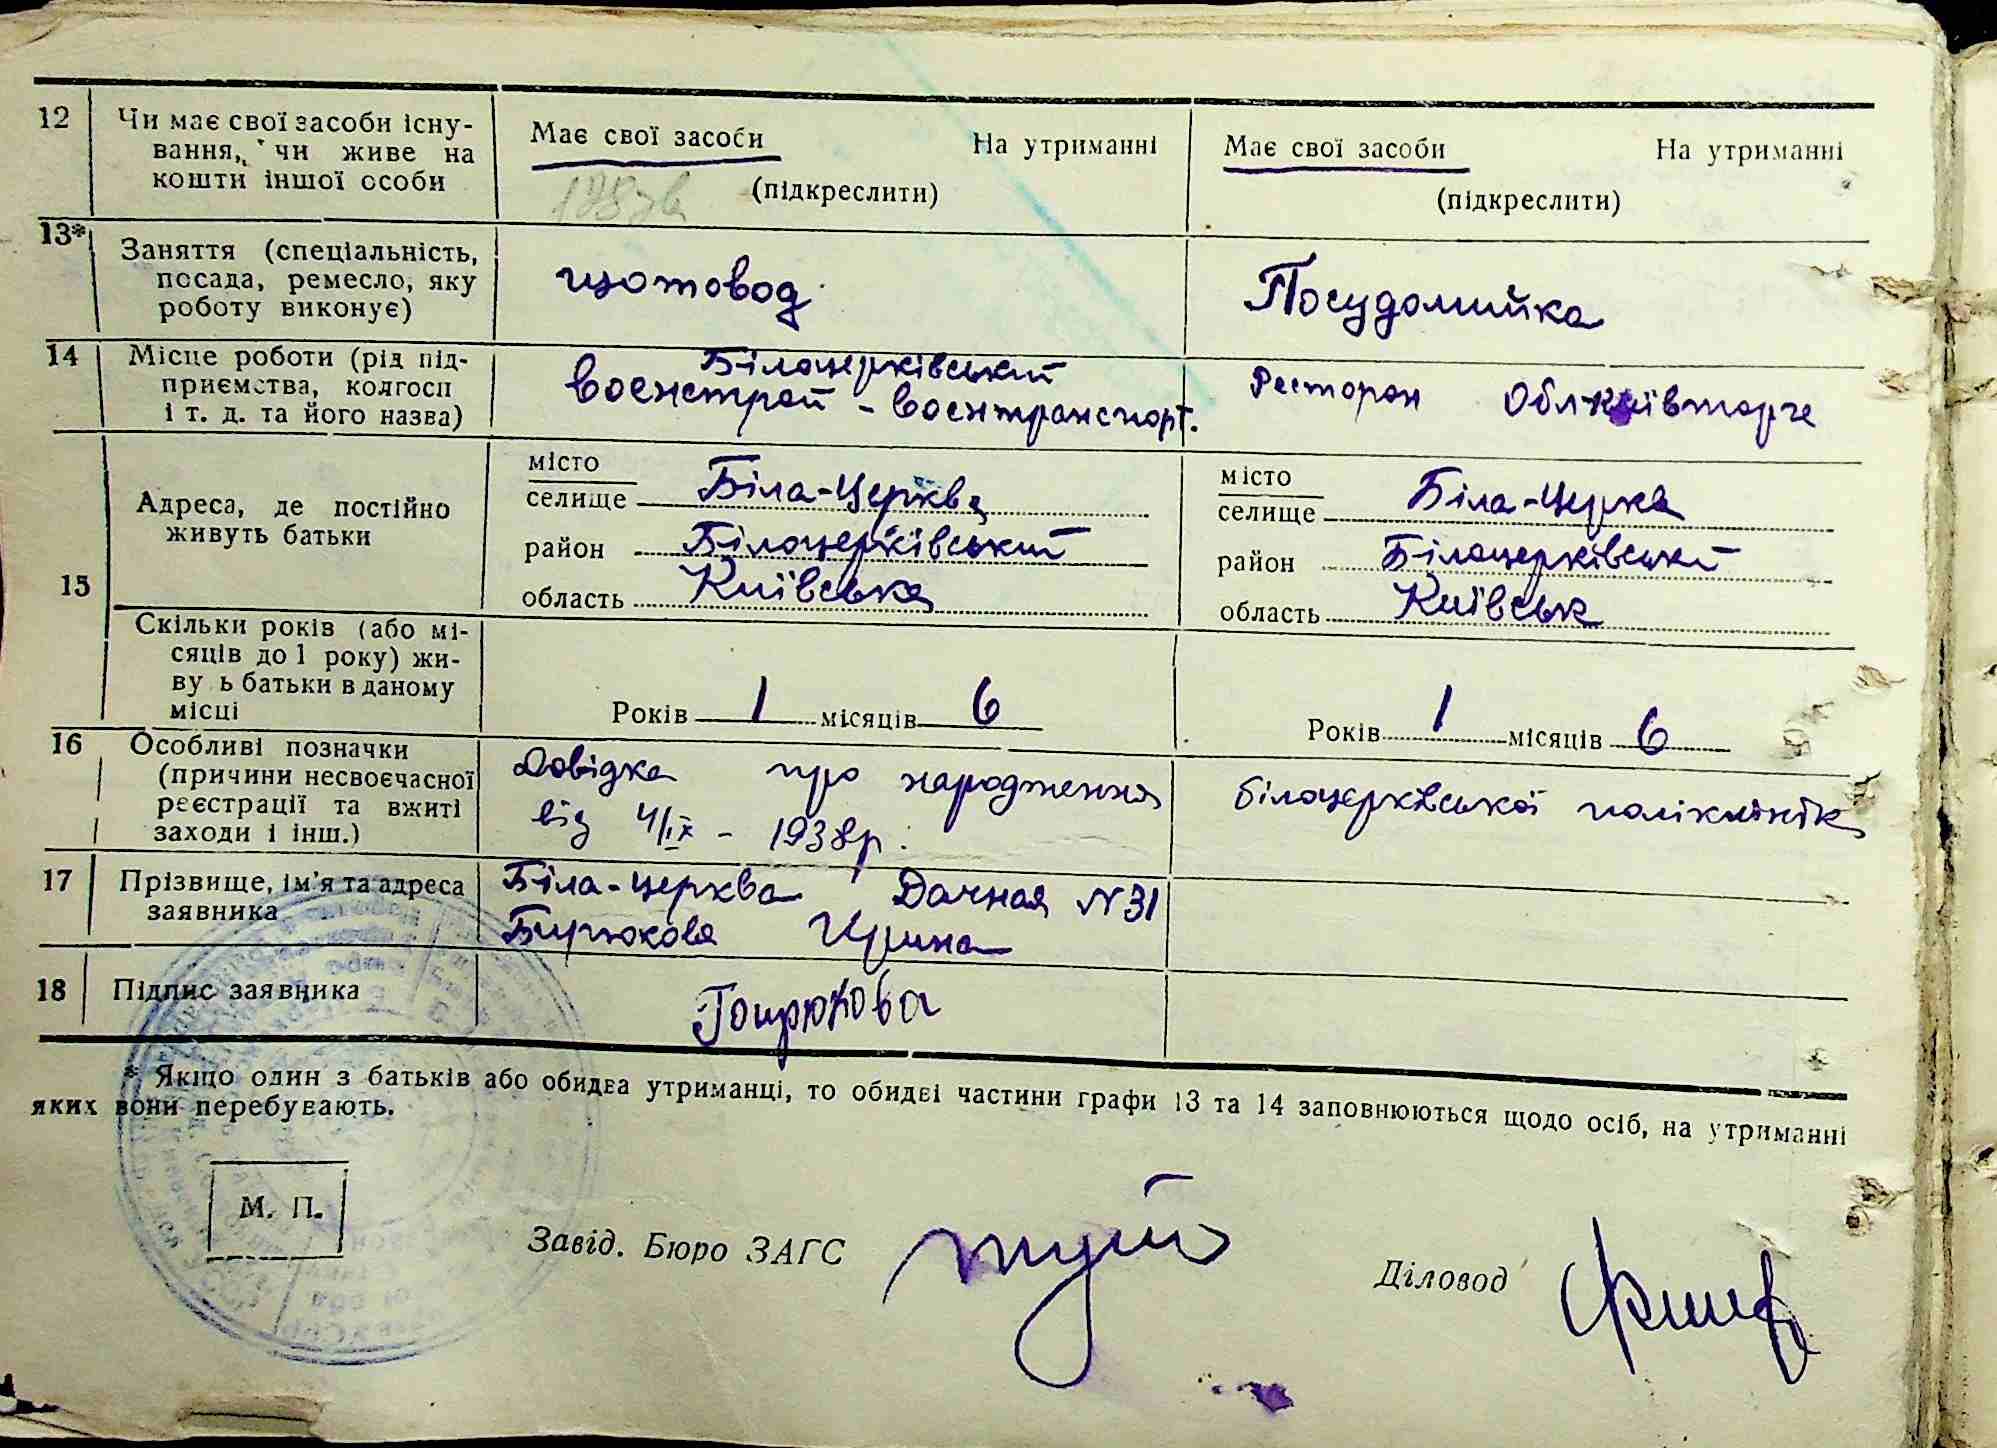 12
Чи має свої засоби існу-
вання, чи живе на
кошти іншої особи
Має свої засоби
На утриманні
(підкреслити)
Має свої засоби
На утриманні
(підкреслити)
13*
Заняття (спеціальність,
посада, ремесло, яку
роботу виконує)
щотовод
Посудомийка
14
Місце роботи (рід під-
приємства, колгосп
і т. д. та його назва)
Білоцерківський
Воєнстрой - воєнтранспорт.
Ресторан Облкиївторге
15
Адреса, де постійно
живуть батьки
місто
селище Біла-Церква
район Білоцерківський
область Київська
місто
селище Біла-Церка
район Білоцерківський
область Київськ
Скільки років (або мі-
сяців до 1 року) жи-
ву ь батьки в даному
місці
Років 1 місяців 6
Років 1 місяців 6
16
Особливі позначки
(причини несвоєчасної
реєстрації та вжиті
заходи і інш.)
Довідка про народження
від 4/ІХ - 1938р.
білоцерківської поліклінік
17
Прізвище, ім'я та адреса
заявника
Біла-церква Дачная N 31
Бирюкова Ирина
18
Підпис заявника
Бирюкова
* Якщо один з батьків або обидва утриманці, то обидві частини графи 13 та 14 заповнюються щодо осіб, на утриманні
яких вони перебувають.
М. П.
Завід. Бюро ЗАГС
Діловод